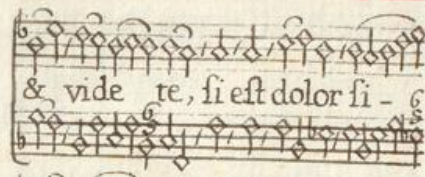 & vide te, ſi eſt dolor ſi-